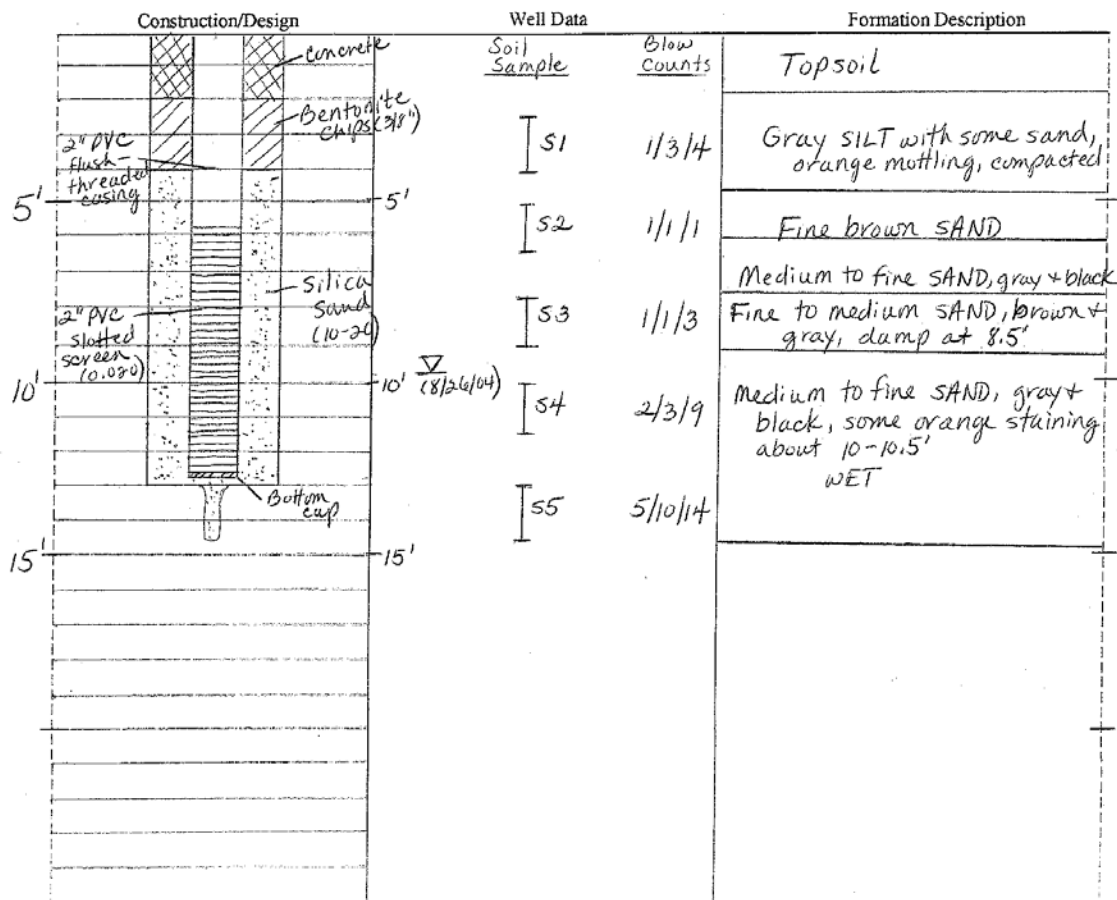 Construction/Design
Well Data
Formation Description
concrete
Bentonite
chips (3/8")
2" PVC
flush-
threaded
casing
5'
5'
Silica
Sand
(10-20)
2" PVC
slotted
screen
(0.020)
10'
10'
(8/26/04)
Bottom
cap
15'
15'
Soil
Sample
Blow
Counts
S1
1/3/4
S2
1/1/1
S3
1/1/3
S4
2/3/9
S5
5/10/14
Topsoil
Gray SILT with some sand,
orange mottling, compacted
Fine brown SAND
Medium to fine SAND, gray + black
Fine to medium SAND, brown +
gray, damp at 8.5'
Medium to fine SAND, gray +
black, some orange staining
about 10-10.5'
WET